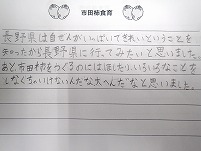 市田柿食育
長野県は自ぜんがいっぱいできれいということを
知ったから長野県に行ってみたいと思いました。
あと市田柿をつくるのにはほしたり、いろいろなことを
しなくちゃいけないんだな大へんだなと思いました。